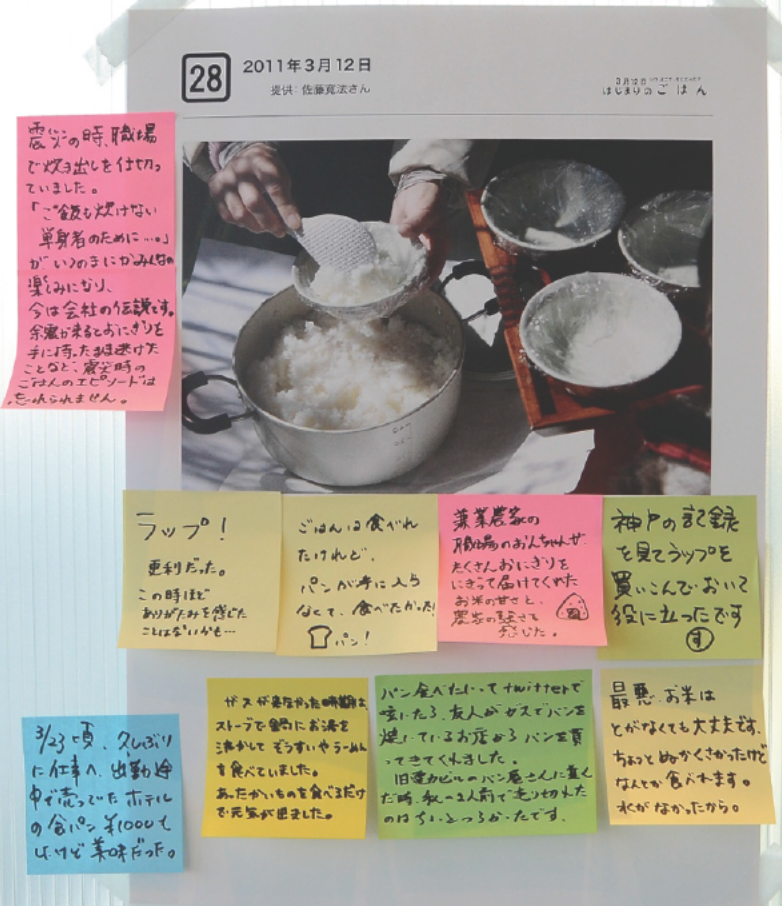 28
2011年3月12日
提供：佐藤寛法さん
3月12日
はじまりのごはん
震災の時、職場
で炊き出しを仕切っ
ていました。
「ご飯も炊けない
単身者のために…。」
が、いつのまにかみんなの
楽しみになり、
今は会社の伝説です。
余震が来るとおにぎりを
手に持ったまま逃げた
ことなど、震災時の
ごはんのエピソードは
忘れられません。
ラップ！
便利だった。
この時ほど
ありがたみを感じた
ことはないかも…
ごはんは食べれ
たけれど、
パンが手に入ら
なくて、食べたかった！
パン！
兼業農家の
職場のおんちゃんが、
たくさんおにぎりを
にぎって届けてくれた
お米の甘さと、
農家の強さを
感じた。
神戸の記録
を見てラップを
買いこんでおいて
役に立ったです
す
3/23頃、久しぶり
に仕事へ、出勤途
中で売ってたホテル
の食パン ¥1000も
したけど美味だった。
ガスが来なかった時期は、
ストーブで鍋にお湯を
沸かしてぞうすいやらーめん
を食べていました。
あったかいものを食べるだけ
で元気が出ました。
パン食べたいってtwitterで
呟いたら、友人がガスでパンを
焼いているお店からパンを買っ
てきてくれました。
旧 ビルのパン屋さんに並ん
だ時、私の2人前で売り切れた
のはちょっとつらかったです。
最悪、お米は
とがなくても大丈夫です。
ちょっとぬかくさかったけど
なんとか食べれます。
水がなかったから。